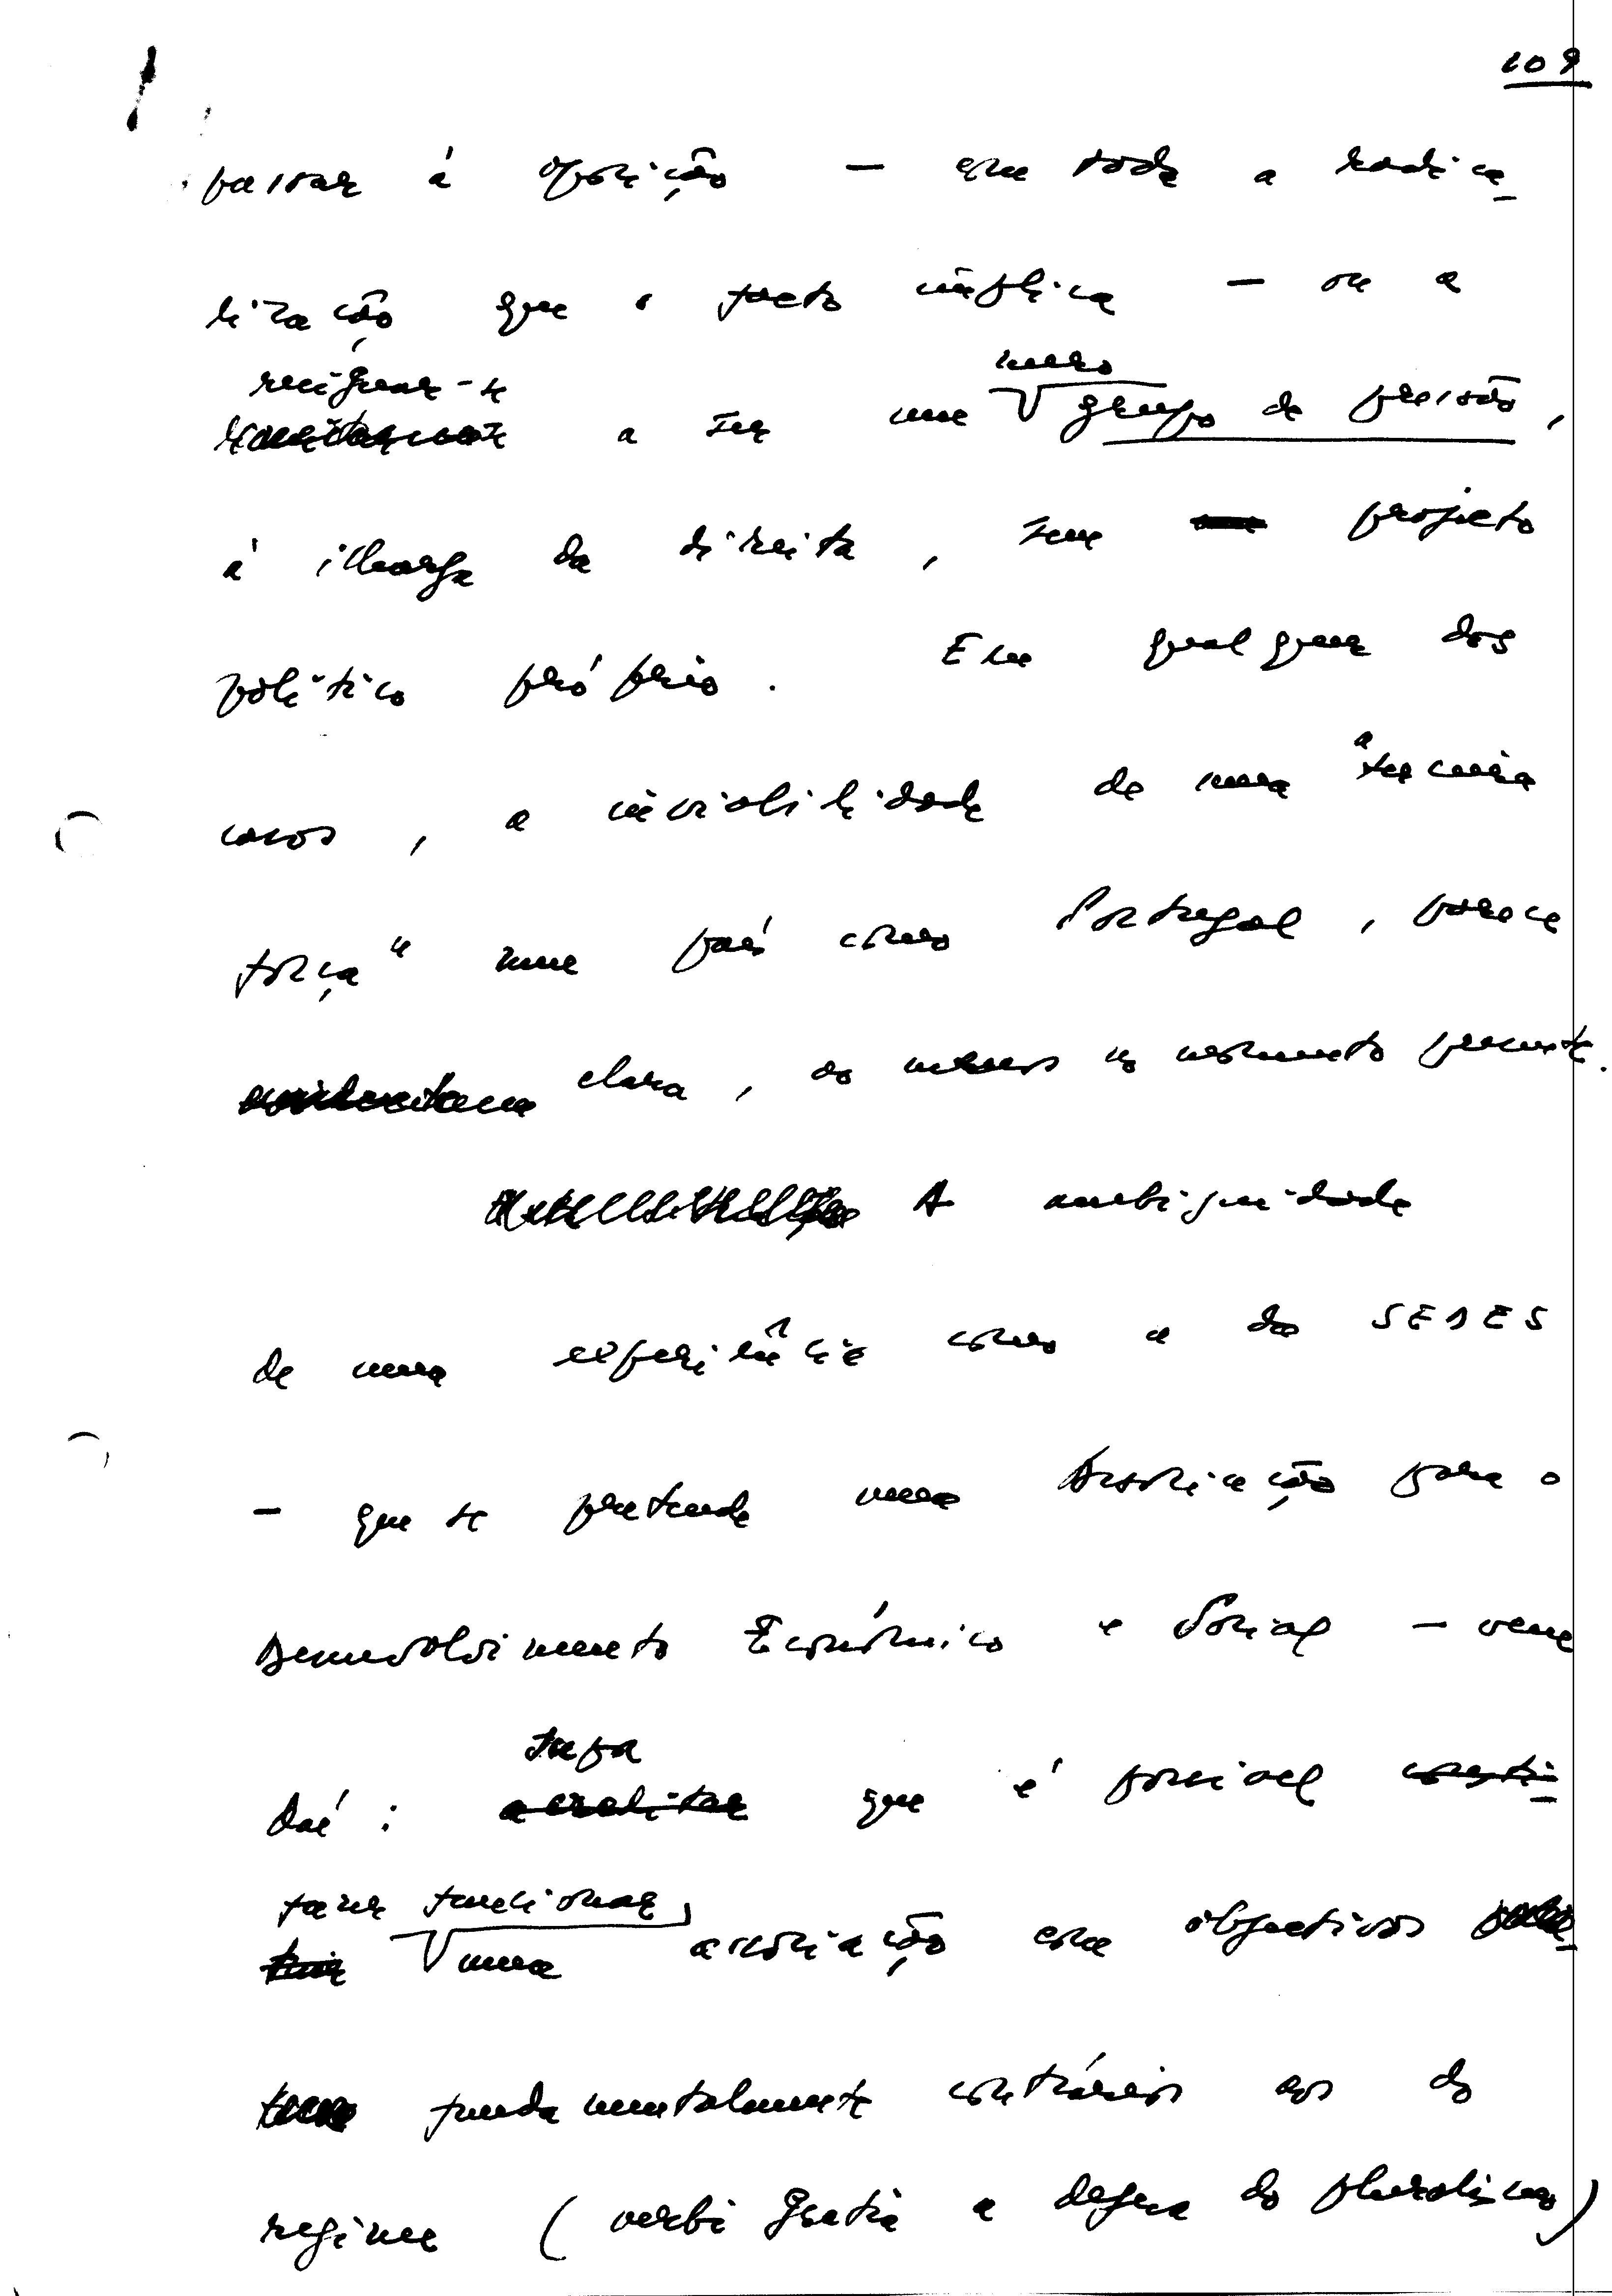 109
passar à oposição — com toda a radica-
lização que o facto implica — ou a
resignar-se
a ser um mero grupo de pressão,
à ilharga da direita, sem projecto
político próprio. Em qualquer dos
casos, a inviabilidade de uma "terceira
força" num país como Portugal, parece
clara, ao menos no momento presente.
A ambiguidade
de uma experiência como a da SEDES
— que se pretende uma Associação para o
Desenvolvimento Económico e Social — vem
supor
daí: acreditar que é possível consti-
fazer funcionar
tuir uma associação com objectivos
fundamentalmente contrários aos do
regime (verbi gratia a defesa do pluralismo)